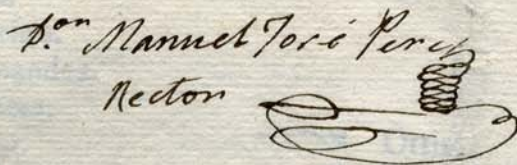 D.on Manuel José Perez
Rector